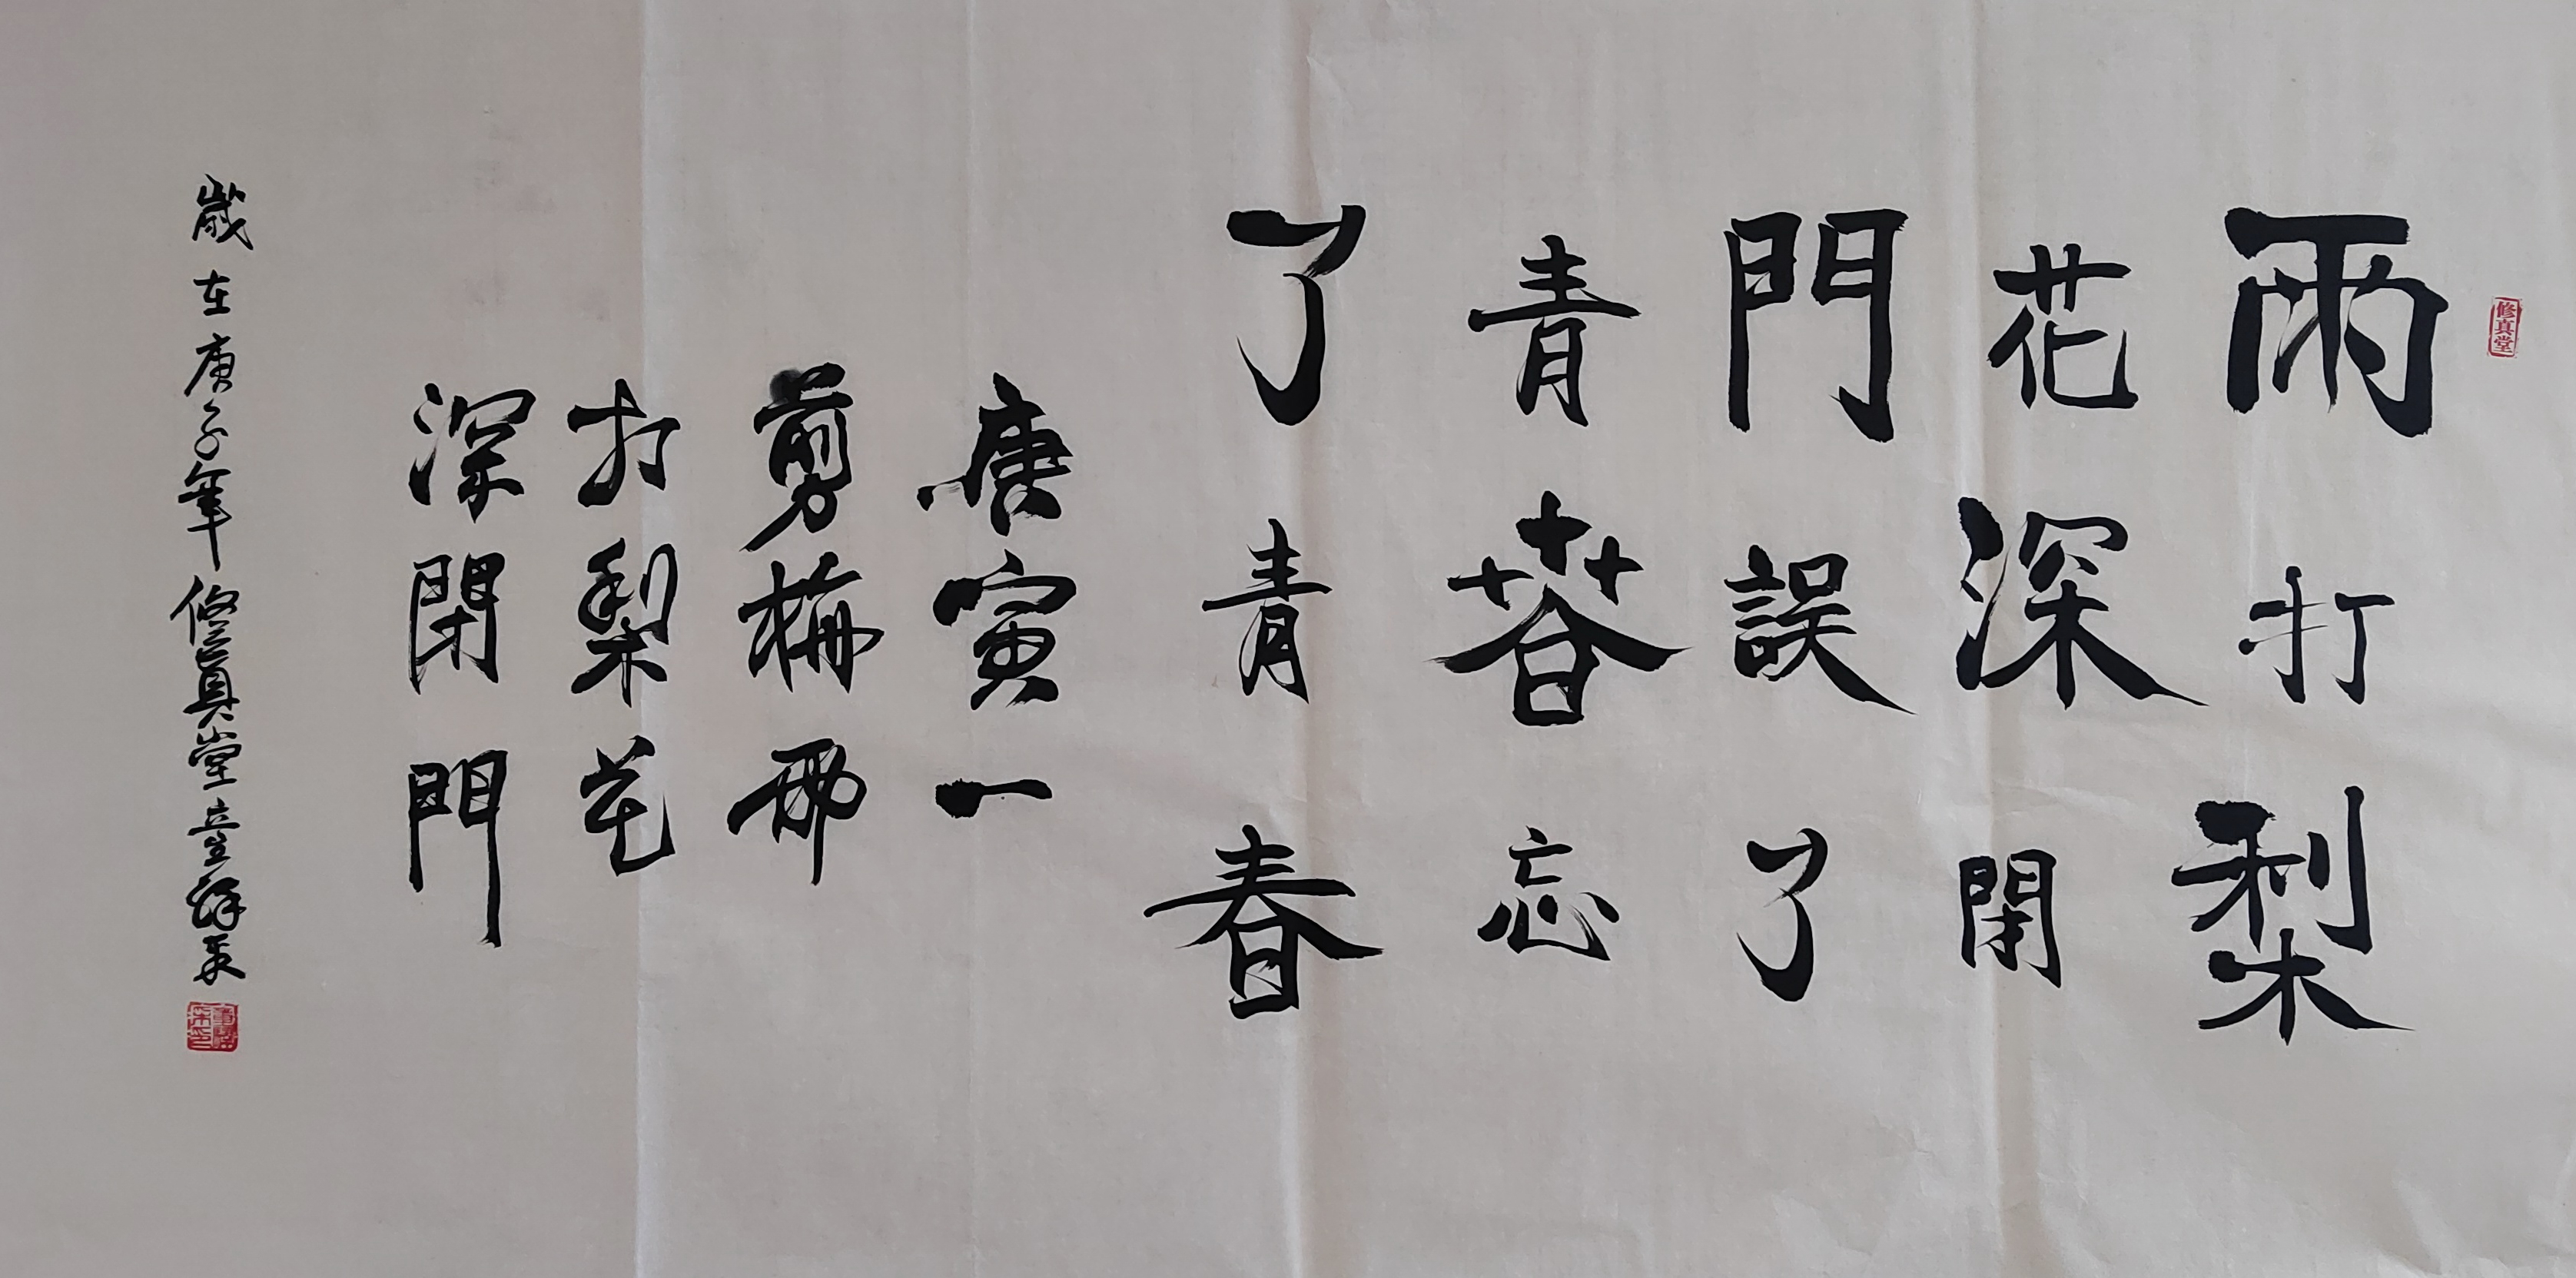 修真堂
雨打梨
花深閉
門誤了
青春忘
了青春
唐寅一
剪梅雨
打梨花
深閉門
歲在庚子年修真堂童